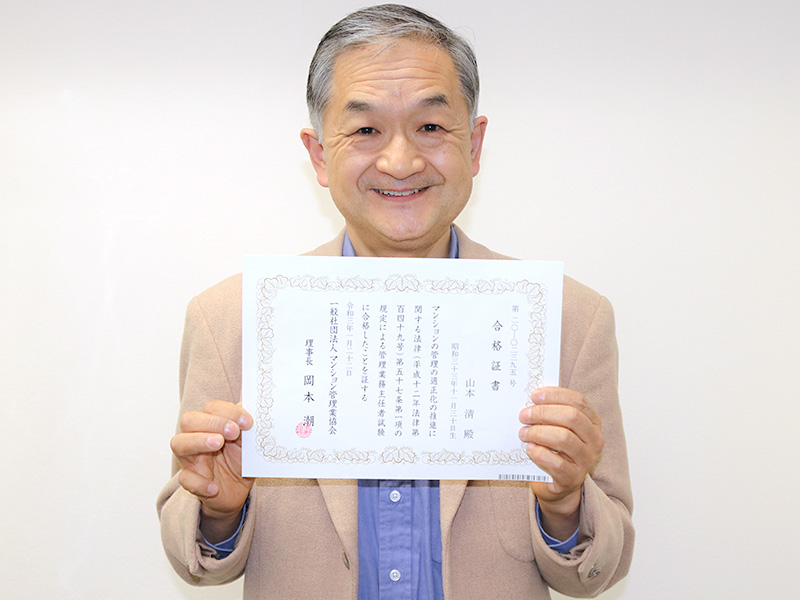 第二〇一〇二三九五号
合格証書
山本 清 殿
昭和三十三年十一月三十日生
マンションの管理の適正化の推進に
関する法律(平成十二年法律第
百四十九号)第五十七条第一項の
規定による管理業務主任者試験
に合格したことを証する
令和三年一月二十二日
一般社団法人 マンション管理業協会
理事長 岡本 潮